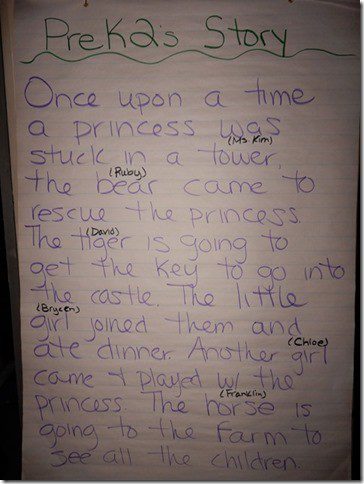 PreK2's Story
Once upon a time
a princess was
(Ms. Kim)
stuck in a tower.
(Ruby)
the bear came to
rescue the princess.
(David)
The tiger is going to
get the key to go into
the castle. The little
(Brycen)
girl joined them and
(Chloe)
ate dinner. Another girl
came + played w/ the
(Franklin)
princess. The horse is
going to the farm to
see all the children.